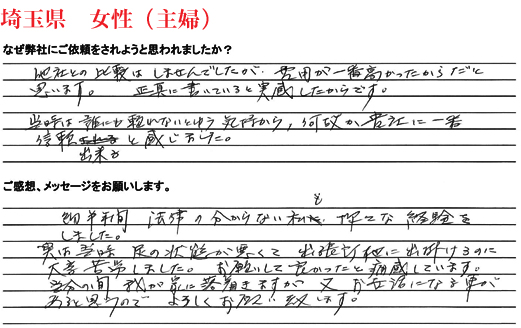 埼玉県 女性（主婦）
なぜ弊社にご依頼をされようと思われましたか？
他社との比較はしませんでしたが、費用が一番高かったからだと
思います。 正直に書いていると実感したからです。
当時は誰にも頼れないという気持から、何故か貴社に一番
信頼 と感じました。
出来る
ご感想、メッセージをお願いします。
約半年間 法律の分からない私も 貴重な経験を
しました。
実は当時 足の状態が悪くて 出張 他に出かけるのに
大変苦労しました。 お願いして良かったと痛感しています。
当分の間 我が家に落着きますが 又お世話になる事が
あると思うので よろしくお願い致します。